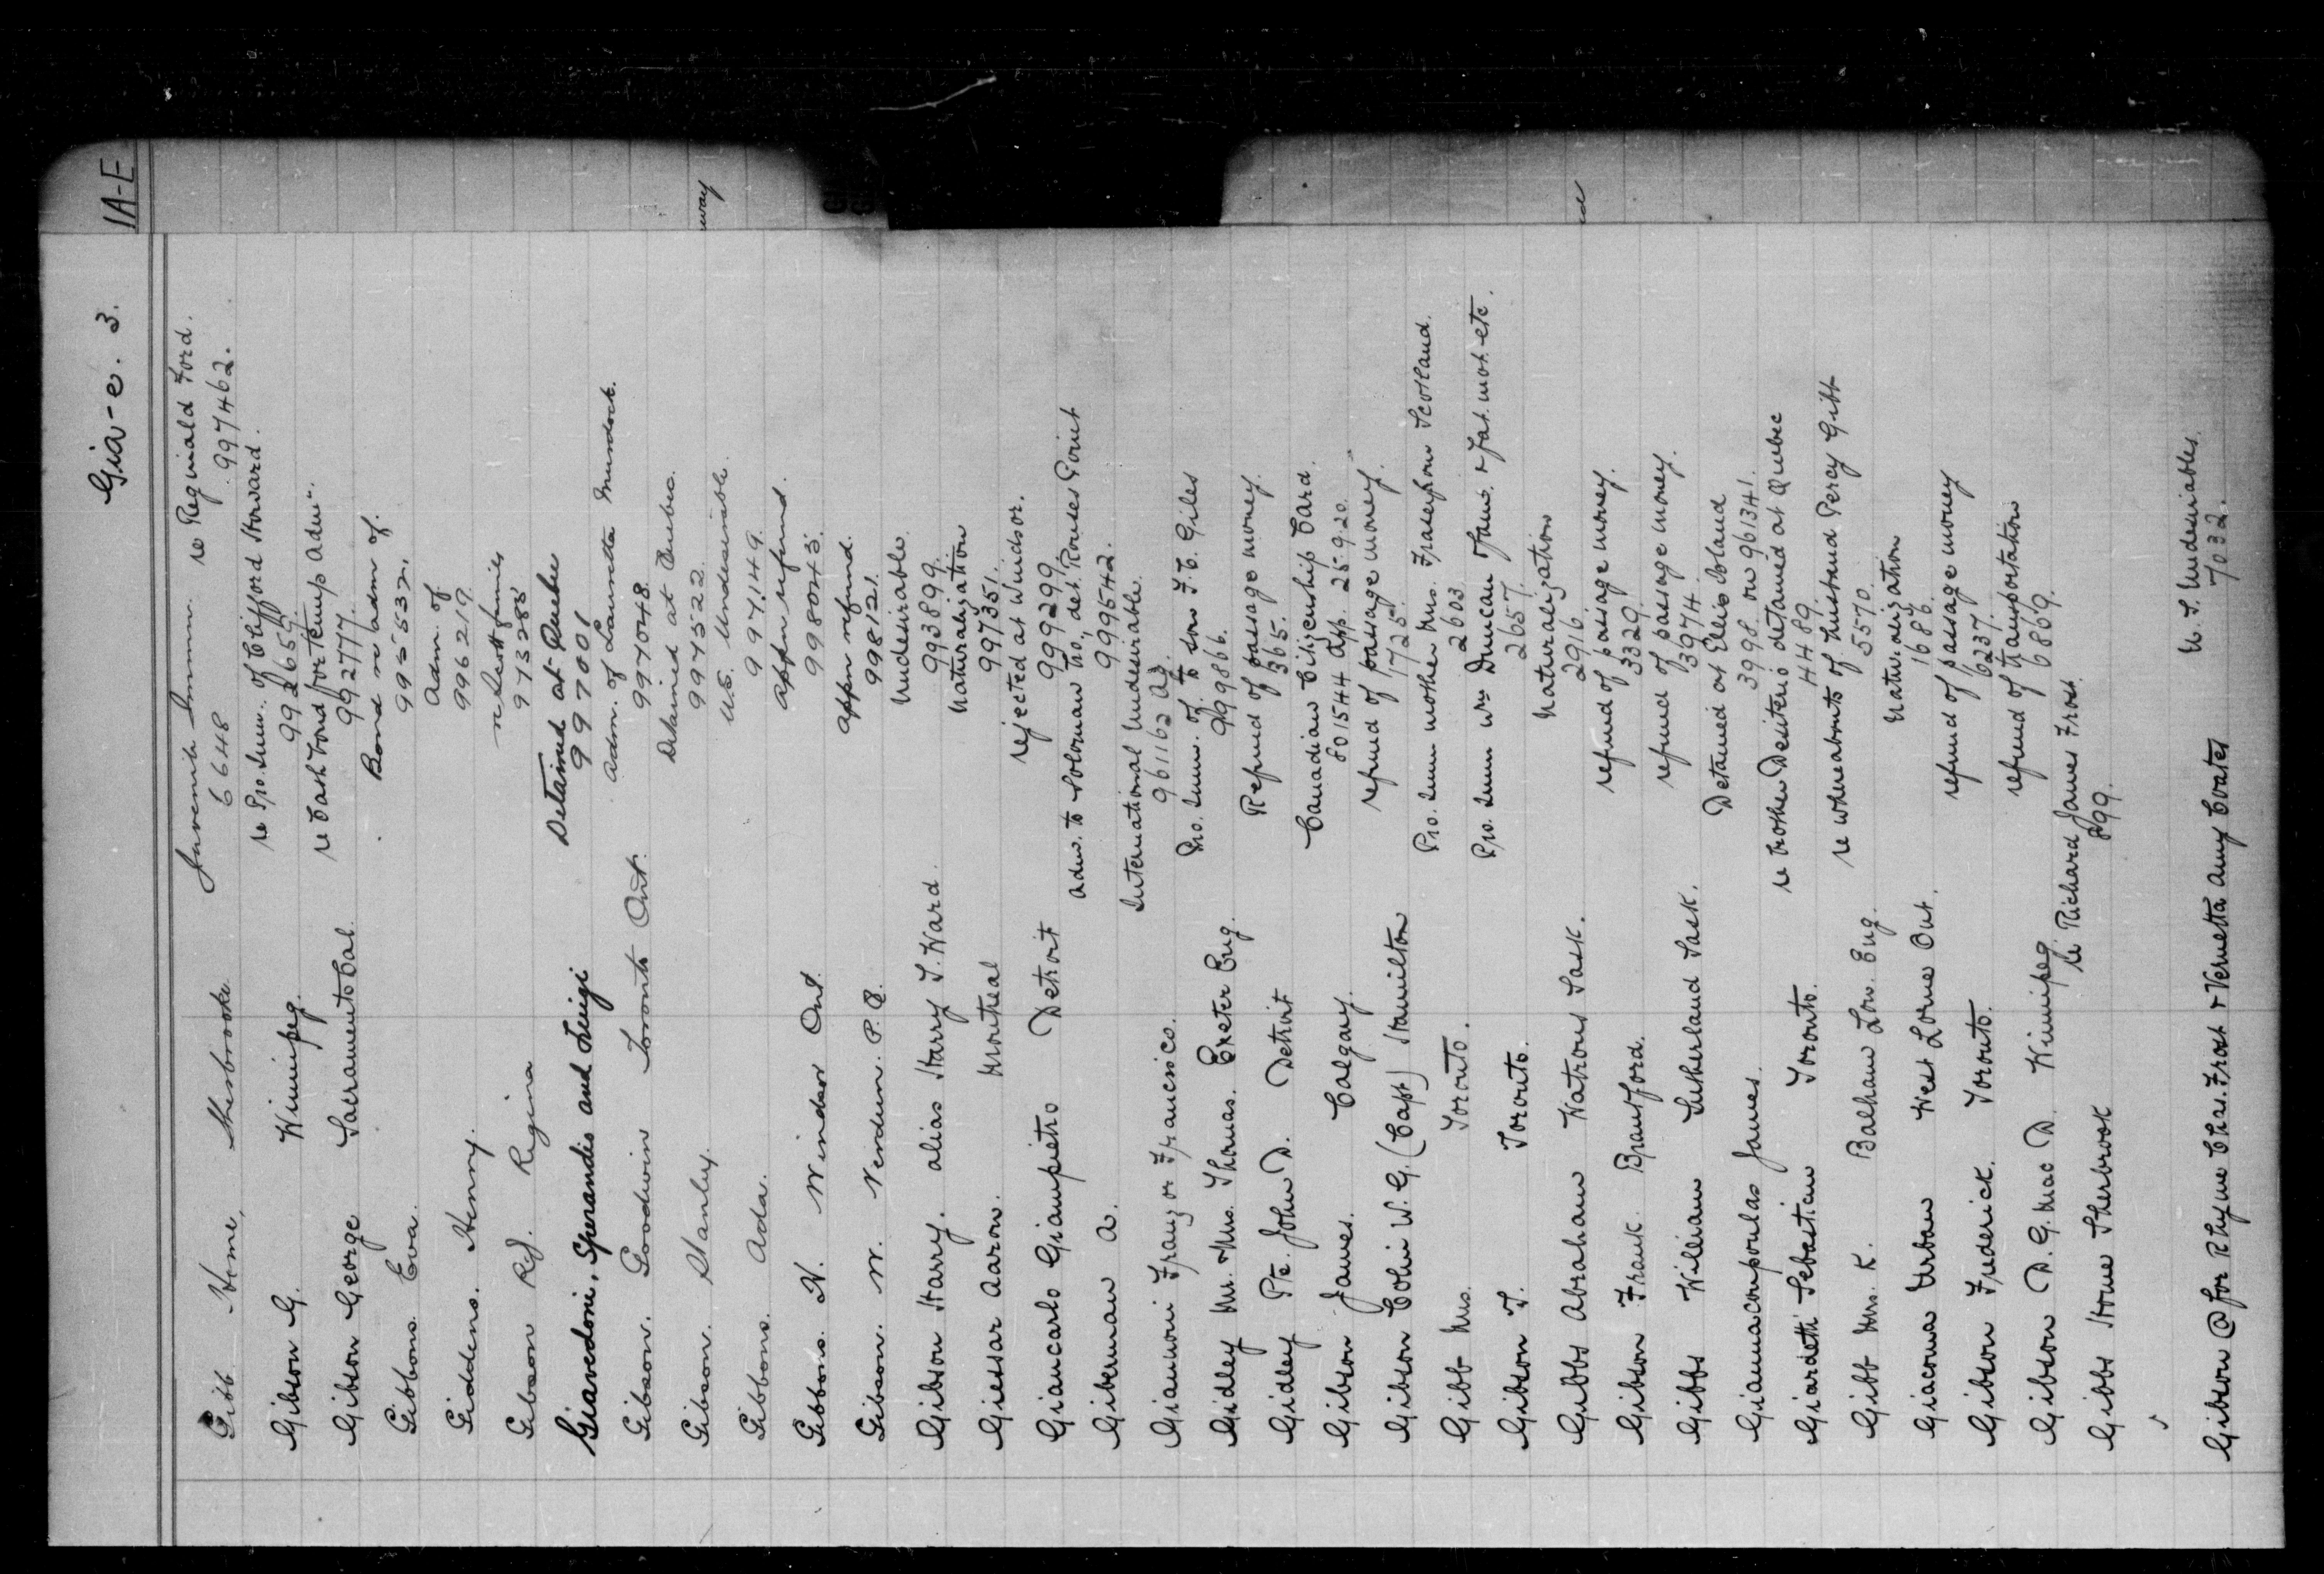 IA-E
Gia-e. 3.
Gibb Home, Sherbrooke Juvenile Immn. re Reginald Ford.
6648 997462.
Gibson G. Winnipeg. re Pro. Imm. of Clifford Howard.
992655.
Gibson George Sacramento Cal. re Cash bond for temp adm.
992777.
Gibbons Eva. Bond re adm of.
995537.
Giddens. Henry. Adm. of
996219
Gibson Rd. Regina re families
973285
Giavedoni, Sperandio and Luigi Detained at Quebec
997001
Gibson. Goodwin Toronto Ont. Adm. of Lauretta Murdock.
997048.
Gibson. Stanley. Detained at Quebec.
997522.
Gibbons. Ada. U.S. Undesirable.
997149.
Gibbons. N. Windsor Ont. appn refund.
998045.
Gibson. W. Verdun. P.Q. appn refund.
998121.
Gibson Harry. alias Harry T. Ward Undesirable
993899.
Giessar Aaron. Montreal naturalization
997351.
Giancarlo Giampietro Detroit rejected at Windsor.
999299.
Giberman A. adm. to Soloman no, det. Rouses Point
999542.
Giannoni Franz or Francisco. International Undesirable.
961162
Gidley Mr. & Mrs. Thomas. Exeter Eng. Pro. Imm. of to son F.C. Giles
999866.
Gidley Pte. John D. Detroit Refund of passage money.
365.
Gibson James. Calgary. Canadian Citizenship Card.
801544 app. 25.9.20.
Gibson Colin W.G. (Capt) Hamilton refund of passage money.
1725.
Gibb Mrs. Toronto. Pro. Imm mother Mrs. Fraser from Scotland.
2603
Gibson T. Toronto. Pro. Imm Wm Duncan Jams. & Fat. mot. etc.
2657.
Gibbs Abraham Watrous Sask. naturalization
2916.
Gibson Frank. Brantford. refund of passage money.
3329.
Gibbs William Sutherland Sask. refund of passage money.
3974.
Giannacoupoulas James. Detained at Ellis Island
3998. on 961341.
Giardetti Sebastian Toronto. re brother Desiterio detained at Quebec
4489.
Gibb Mrs. K. Balham Lon. Eng. re whereabouts of husband Percy Gibb
5570.
Giacoma Urban West Lorne Ont. naturalization
1686.
Gibson Frederick. Toronto. refund of passage money
6237.
Gibson D. G. Mac D. Winnipeg. refund of transportation
6869.
Gibbs Home Sherbrook re Richard James Frost.
899.
Gibson @ for Rhyme Chas. Frost & Vernetta Amy Coates U. S. Undesirables.
7032.